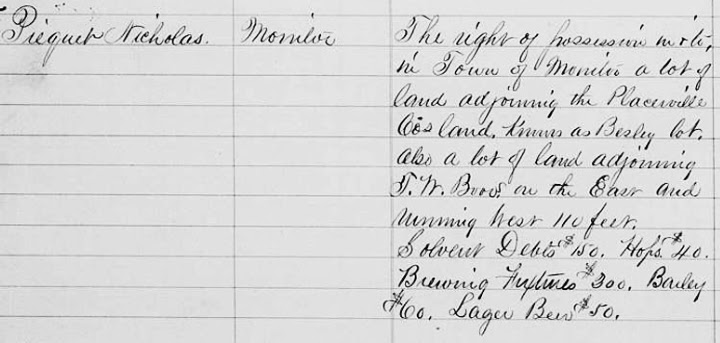 Piequet Nicholas. Monitor The right of possession in & to,
in Town of Monitor a lot of
land adjoining the Placerville
Co's land. Known as Besley lot.
also a lot of land adjoining
T. W. on the East and
running West 110 feet.
Solvent Debts $150. Hops. $40.
Brewing Fixtures $300. Barley
$60. Lager Beer $50.